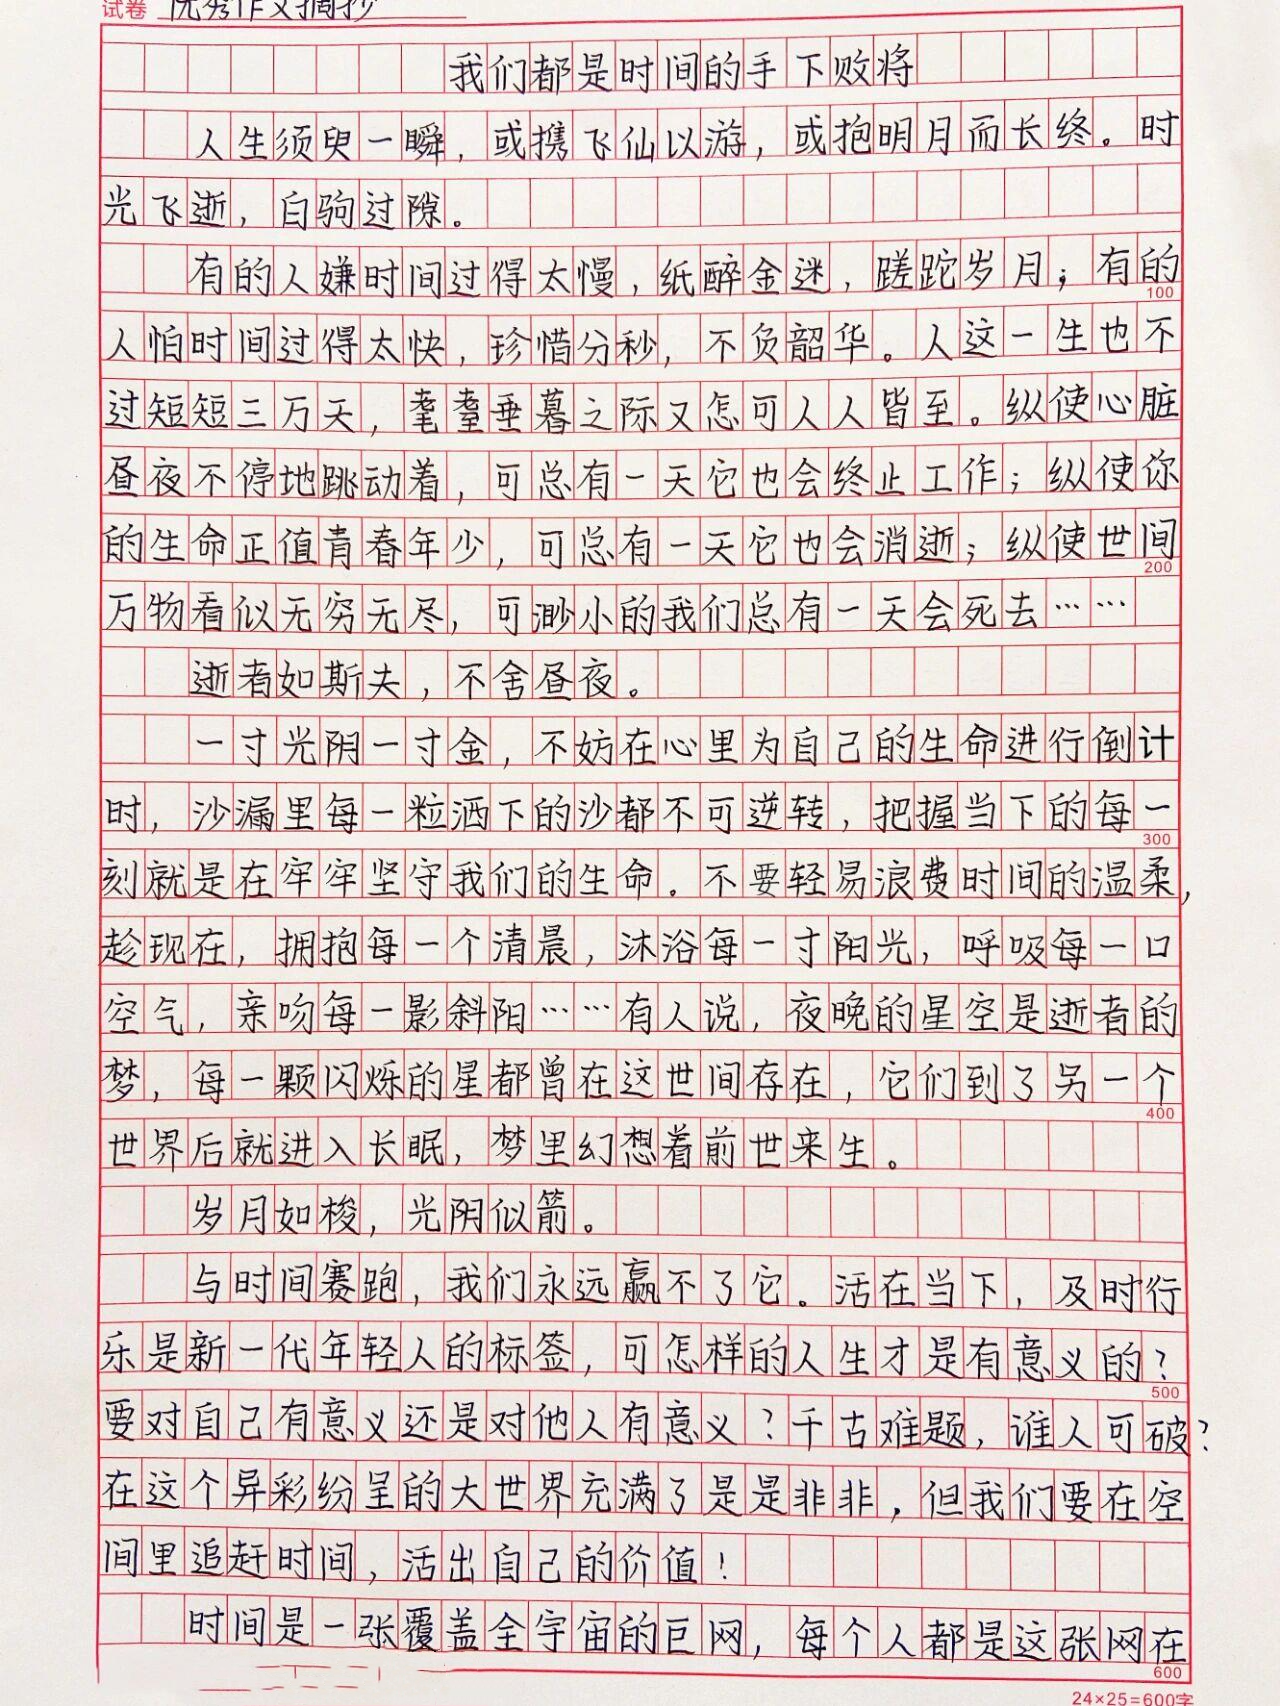 试卷 优秀作文摘抄
我们都是时间的手下败将
人生须臾一瞬，或携飞仙以游，或抱明月而长终。时
光飞逝，白驹过隙。
有的人嫌时间过得太慢，纸醉金迷，蹉跎岁月；有的
100
人怕时间过得太快，珍惜分秒，不负韶华。人这一生也不
过短短三万天，耄耋垂暮之际又怎可人人皆至。纵使心脏
昼夜不停地跳动着，可总有一天它也会终止工作；纵使你
的生命正值青春年少，可总有一天它也会消逝；纵使世间
200
万物看似无穷无尽，可渺小的我们总有一天会死去……
逝者如斯夫，不舍昼夜。
一寸光阴一寸金，不妨在心里为自己的生命进行倒计
时，沙漏里每一粒洒下的沙都不可逆转，把握当下的每一
300
刻就是在牢牢坚守我们的生命。不要轻易浪费时间的温柔，
趁现在，拥抱每一个清晨，沐浴每一寸阳光，呼吸每一口
空气，亲吻每一影斜阳……有人说，夜晚的星空是逝者的
梦，每一颗闪烁的星都曾在这世间存在，它们到了另一个
400
世界后就进入长眠，梦里幻想着前世来生。
岁月如梭，光阴似箭。
与时间赛跑，我们永远赢不了它。活在当下，及时行
乐是新一代年轻人的标签，可怎样的人生才是有意义的？
500
要对自己有意义还是对他人有意义？千古难题，谁人可破？
在这个异彩纷呈的大世界充满了是是非非，但我们要在空
间里追赶时间，活出自己的价值！
时间是一张覆盖全宇宙的巨网，每个人都是这张网在
600
24×25=600字